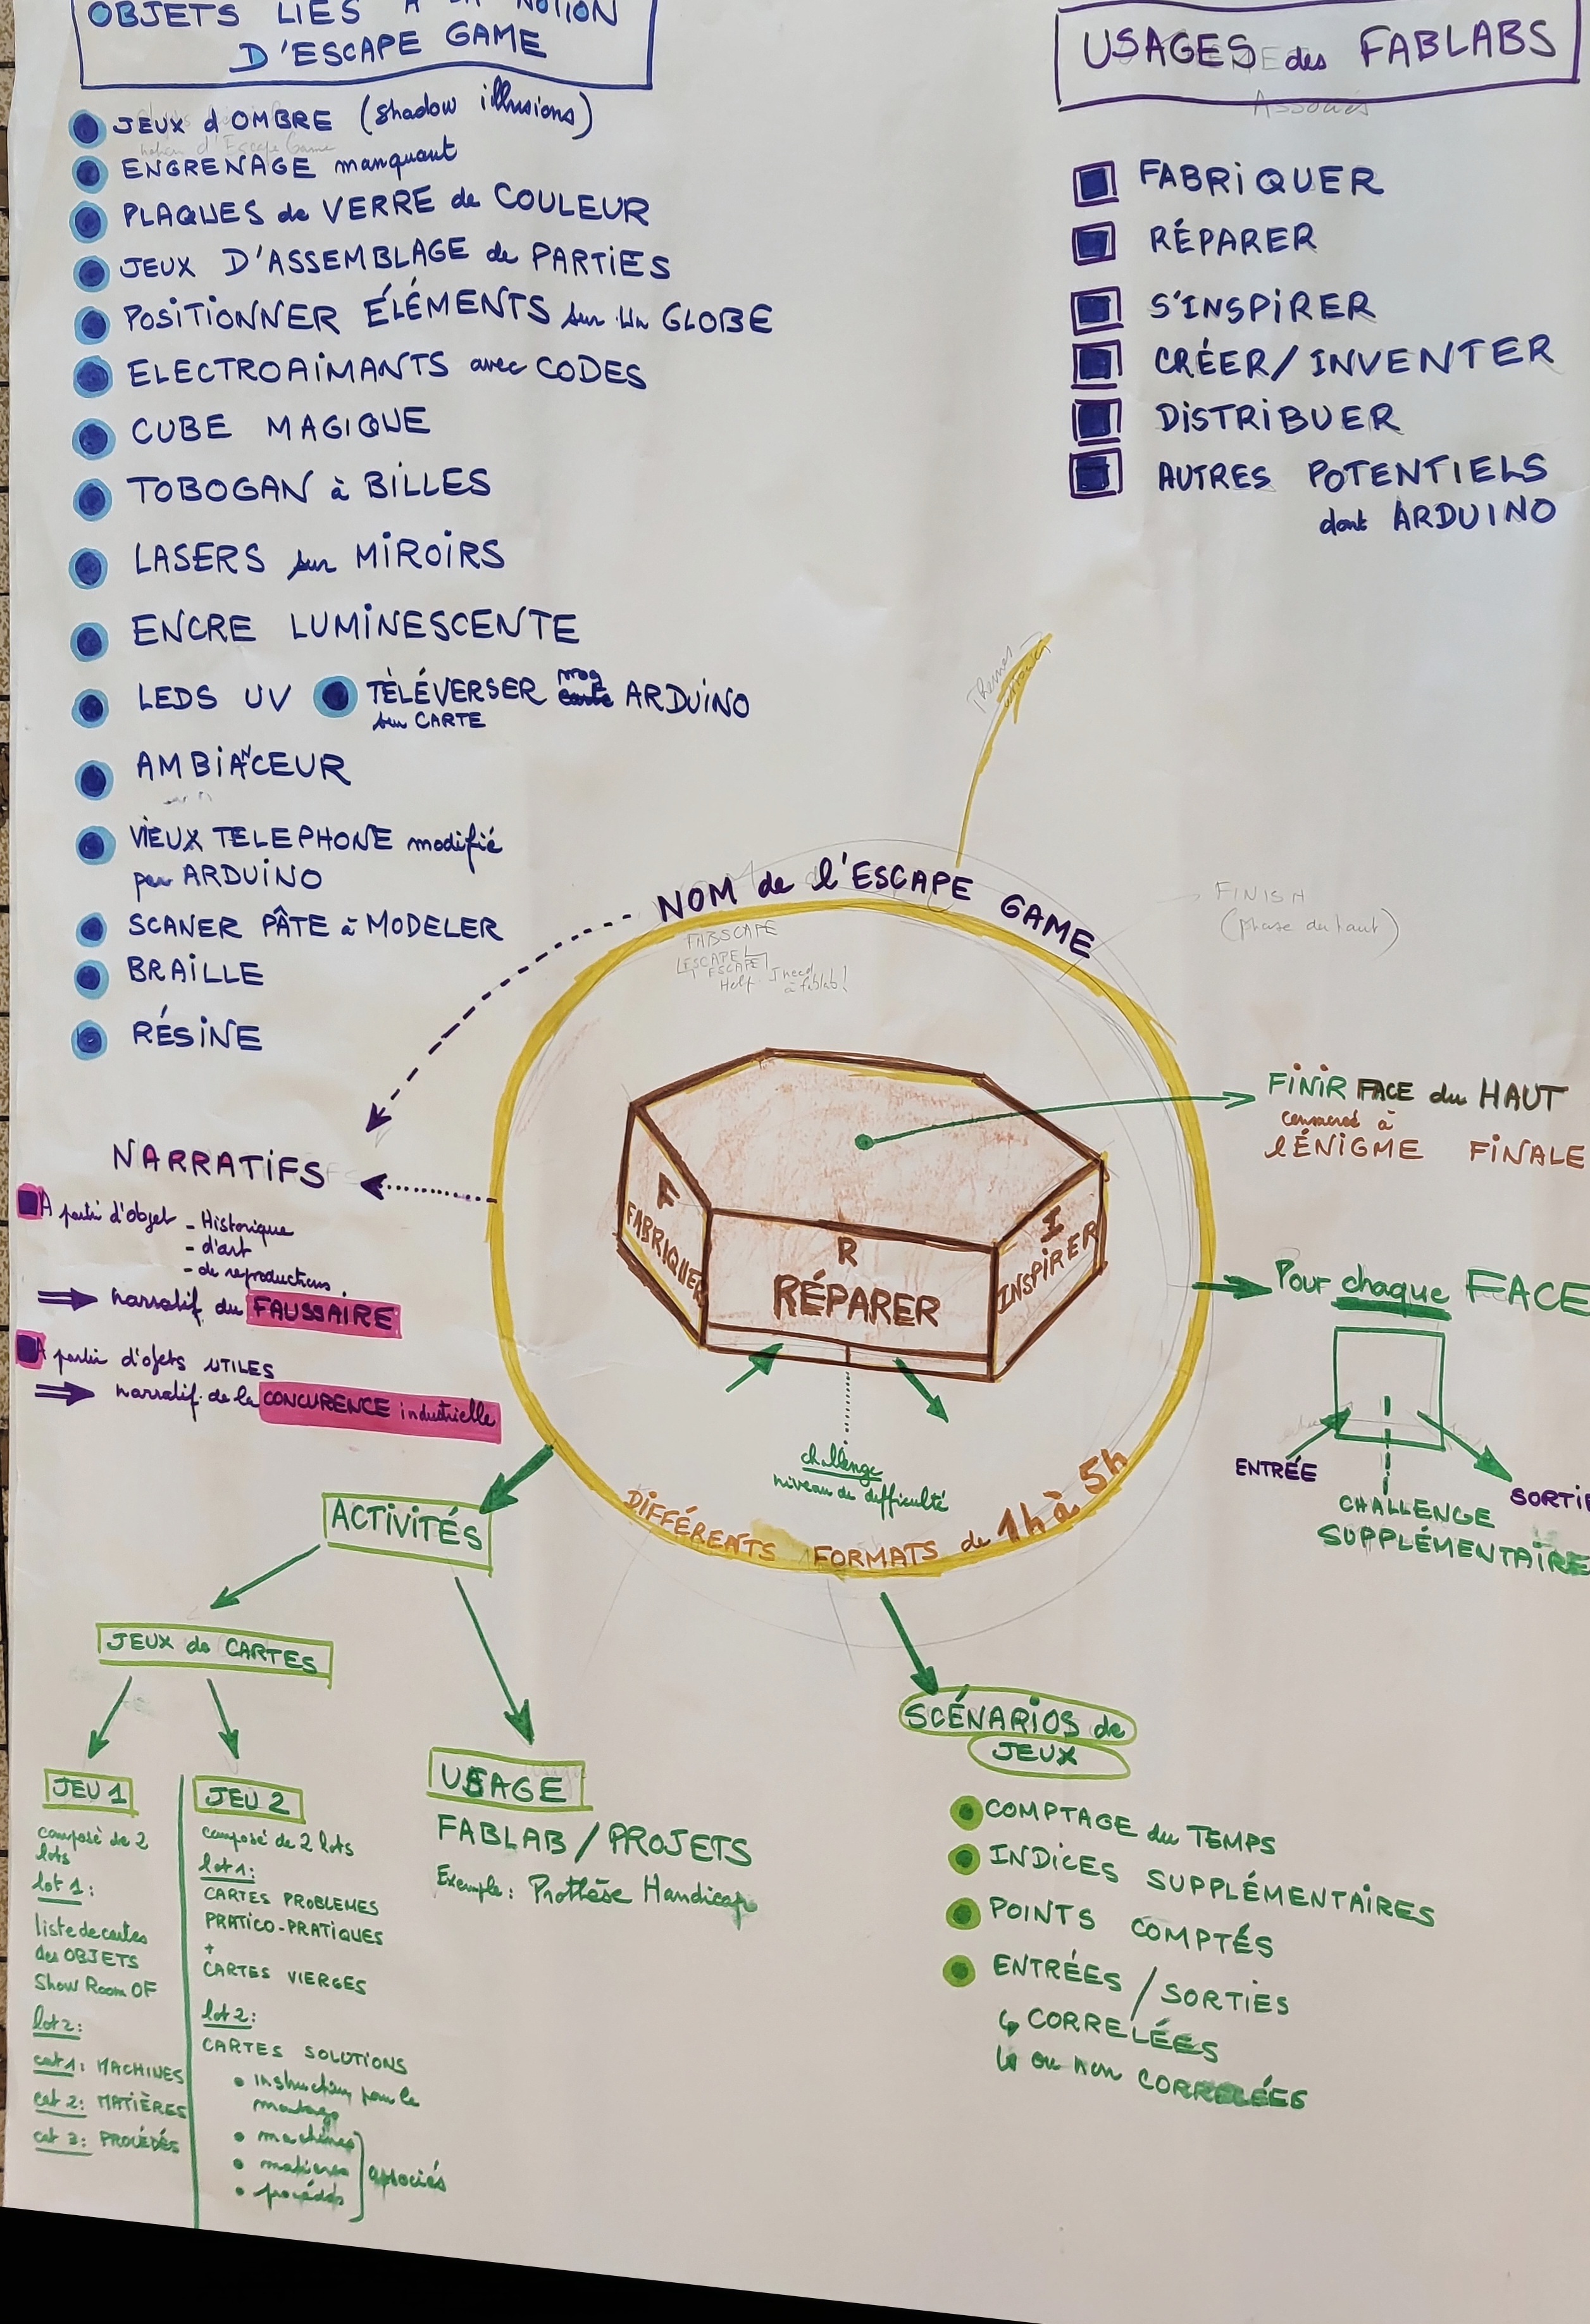 OBJETS LIÉS À LA NOTION
D'ESCAPE GAME
JEUX d'OMBRE (shadow illusions)
ENGRENAGE manquant
PLAQUES de VERRE de COULEUR
JEUX D'ASSEMBLAGE de PARTIES
POSITIONNER ÉLÉMENTS sur un GLOBE
ELECTROAIMANTS avec CODES
CUBE MAGIQUE
TOBOGAN à BILLES
LASERS sur MIROIRS
ENCRE LUMINESCENTE
LEDS UV
TÉLÉVERSER prog ARDUINO
sur CARTE
AMBIANCEUR
VIEUX TELEPHONE modifié
par ARDUINO
SCANER PÂTE à MODELER
BRAILLE
RÉSINE
USAGES des FABLABS
Associés
FABRIQUER
RÉPARER
S'INSPIRER
CRÉER/INVENTER
DISTRIBUER
AUTRES POTENTIELS
dont ARDUINO
NOM de l'ESCAPE GAME
FABSCAPE
ESCAPE
Help I need
a fablab!
FINISH
(phase du haut)
FINIR FACE du HAUT
consacré à
l'ÉNIGME FINALE
F
FABRIQUER
R
RÉPARER
I
INSPIRER
challenge
niveau de difficulté
DIFFÉRENTS FORMATS de 1h à 5h
Pour chaque FACE
ENTRÉE
SORTIE
CHALLENGE
SUPPLÉMENTAIRE
NARRATIFS
A partir d'objet - Historique
- d'art
- de reproductions
⇒ narratif du FAUSSAIRE
A partir d'ojets UTILES
⇒ narratif de la CONCURENCE industrielle
ACTIVITÉS
JEUX de CARTES
JEU 1
composé de 2
lots
lot 1:
liste de cartes
des OBJETS
Show Room OF
lot 2:
cat 1: MACHINES
cat 2: MATIÈRES
cat 3: PROCÉDÉS
JEU 2
composé de 2 lots
lot 1:
CARTES PROBLEMES
PRATICO-PRATIQUES
+
CARTES VIERGES
lot 2:
CARTES SOLUTIONS
• instruction pour le
montage
• machines
• matieres
• procédés
associés
USAGE
FABLAB / PROJETS
Exemple: Prothèse Handicap
SCÉNARIOS de
JEUX
COMPTAGE du TEMPS
INDICES SUPPLÉMENTAIRES
POINTS COMPTÉS
ENTRÉES / SORTIES
↳ CORRELÉES
↳ ou non CORRELÉES